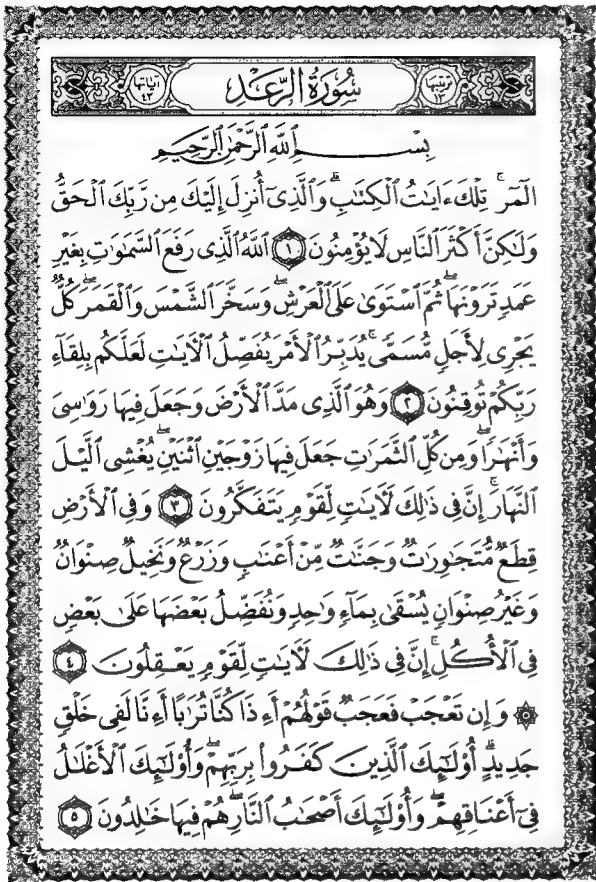 ترتيبها ١٣ سُورَةُ الرَّعْدِ آياتها ٤٣
بِسْمِ ٱللَّهِ ٱلرَّحْمَٰنِ ٱلرَّحِيمِ
الٓمٓرۚ تِلْكَ ءَايَٰتُ ٱلْكِتَٰبِۗ وَٱلَّذِىٓ أُنزِلَ إِلَيْكَ مِن رَّبِّكَ ٱلْحَقُّ
وَلَٰكِنَّ أَكْثَرَ ٱلنَّاسِ لَا يُؤْمِنُونَ ١ ٱللَّهُ ٱلَّذِى رَفَعَ ٱلسَّمَٰوَٰتِ بِغَيْرِ
عَمَدٍ تَرَوْنَهَاۖ ثُمَّ ٱسْتَوَىٰ عَلَى ٱلْعَرْشِۖ وَسَخَّرَ ٱلشَّمْسَ وَٱلْقَمَرَۖ كُلٌّ
يَجْرِى لِأَجَلٍ مُّسَمًّىۚ يُدَبِّرُ ٱلْأَمْرَ يُفَصِّلُ ٱلْءَايَٰتِ لَعَلَّكُم بِلِقَآءِ
رَبِّكُمْ تُوقِنُونَ ٢ وَهُوَ ٱلَّذِى مَدَّ ٱلْأَرْضَ وَجَعَلَ فِيهَا رَوَٰسِىَ
وَأَنْهَٰرًاۖ وَمِن كُلِّ ٱلثَّمَرَٰتِ جَعَلَ فِيهَا زَوْجَيْنِ ٱثْنَيْنِۖ يُغْشِى ٱلَّيْلَ
ٱلنَّهَارَۚ إِنَّ فِى ذَٰلِكَ لَءَايَٰتٍ لِّقَوْمٍ يَتَفَكَّرُونَ ٣ وَفِى ٱلْأَرْضِ
قِطَعٌ مُّتَجَٰوِرَٰتٌ وَجَنَّٰتٌ مِّنْ أَعْنَٰبٍ وَزَرْعٌ وَنَخِيلٌ صِنْوَانٌ
وَغَيْرُ صِنْوَانٍ يُسْقَىٰ بِمَآءٍ وَٰحِدٍ وَنُفَضِّلُ بَعْضَهَا عَلَىٰ بَعْضٍ
فِى ٱلْأُكُلِۚ إِنَّ فِى ذَٰلِكَ لَءَايَٰتٍ لِّقَوْمٍ يَعْقِلُونَ ٤
۞ وَإِن تَعْجَبْ فَعَجَبٌ قَوْلُهُمْ أَءِذَا كُنَّا تُرَٰبًا أَءِنَّا لَفِى خَلْقٍ
جَدِيدٍۗ أُو۟لَٰٓئِكَ ٱلَّذِينَ كَفَرُوا۟ بِرَبِّهِمْۖ وَأُو۟لَٰٓئِكَ ٱلْأَغْلَٰلُ
فِىٓ أَعْنَاقِهِمْۖ وَأُو۟لَٰٓئِكَ أَصْحَٰبُ ٱلنَّارِۖ هُمْ فِيهَا خَٰلِدُونَ ٥